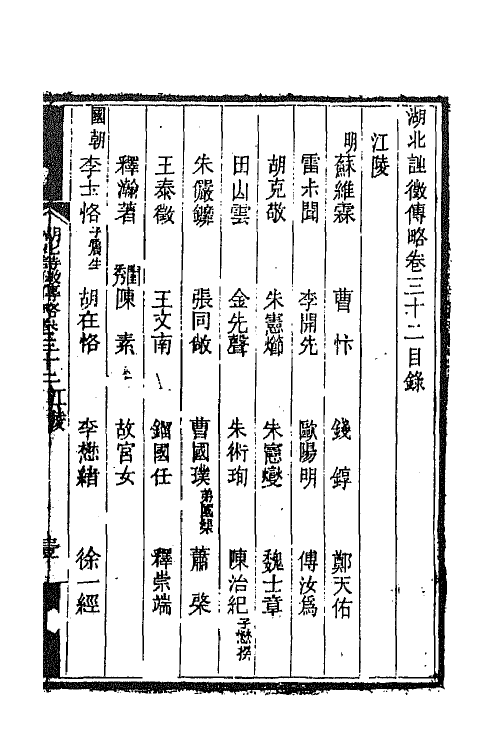 湖北詩徵傳略卷三十二目錄
江陵
明 蘇維霖 曹忭 錢錞 鄭天佑
雷未聞 李開先 歐陽明 傅汝為
胡克敬 朱憲㸅 朱憲燮 魏士章
田山雲 金先聲 朱術珣 陳治紀 子懋揆
朱儼鑐 張同敞 曹國璞 弟國榘 蕭棨
王泰徵 王文南 鎦國任 釋崇端
釋瀚著 閨秀 陳素 故宮女
國朝 李士恪 子震生 胡在恪 李懋緒 徐一經
湖北詩徵傳略卷三十二 江陵